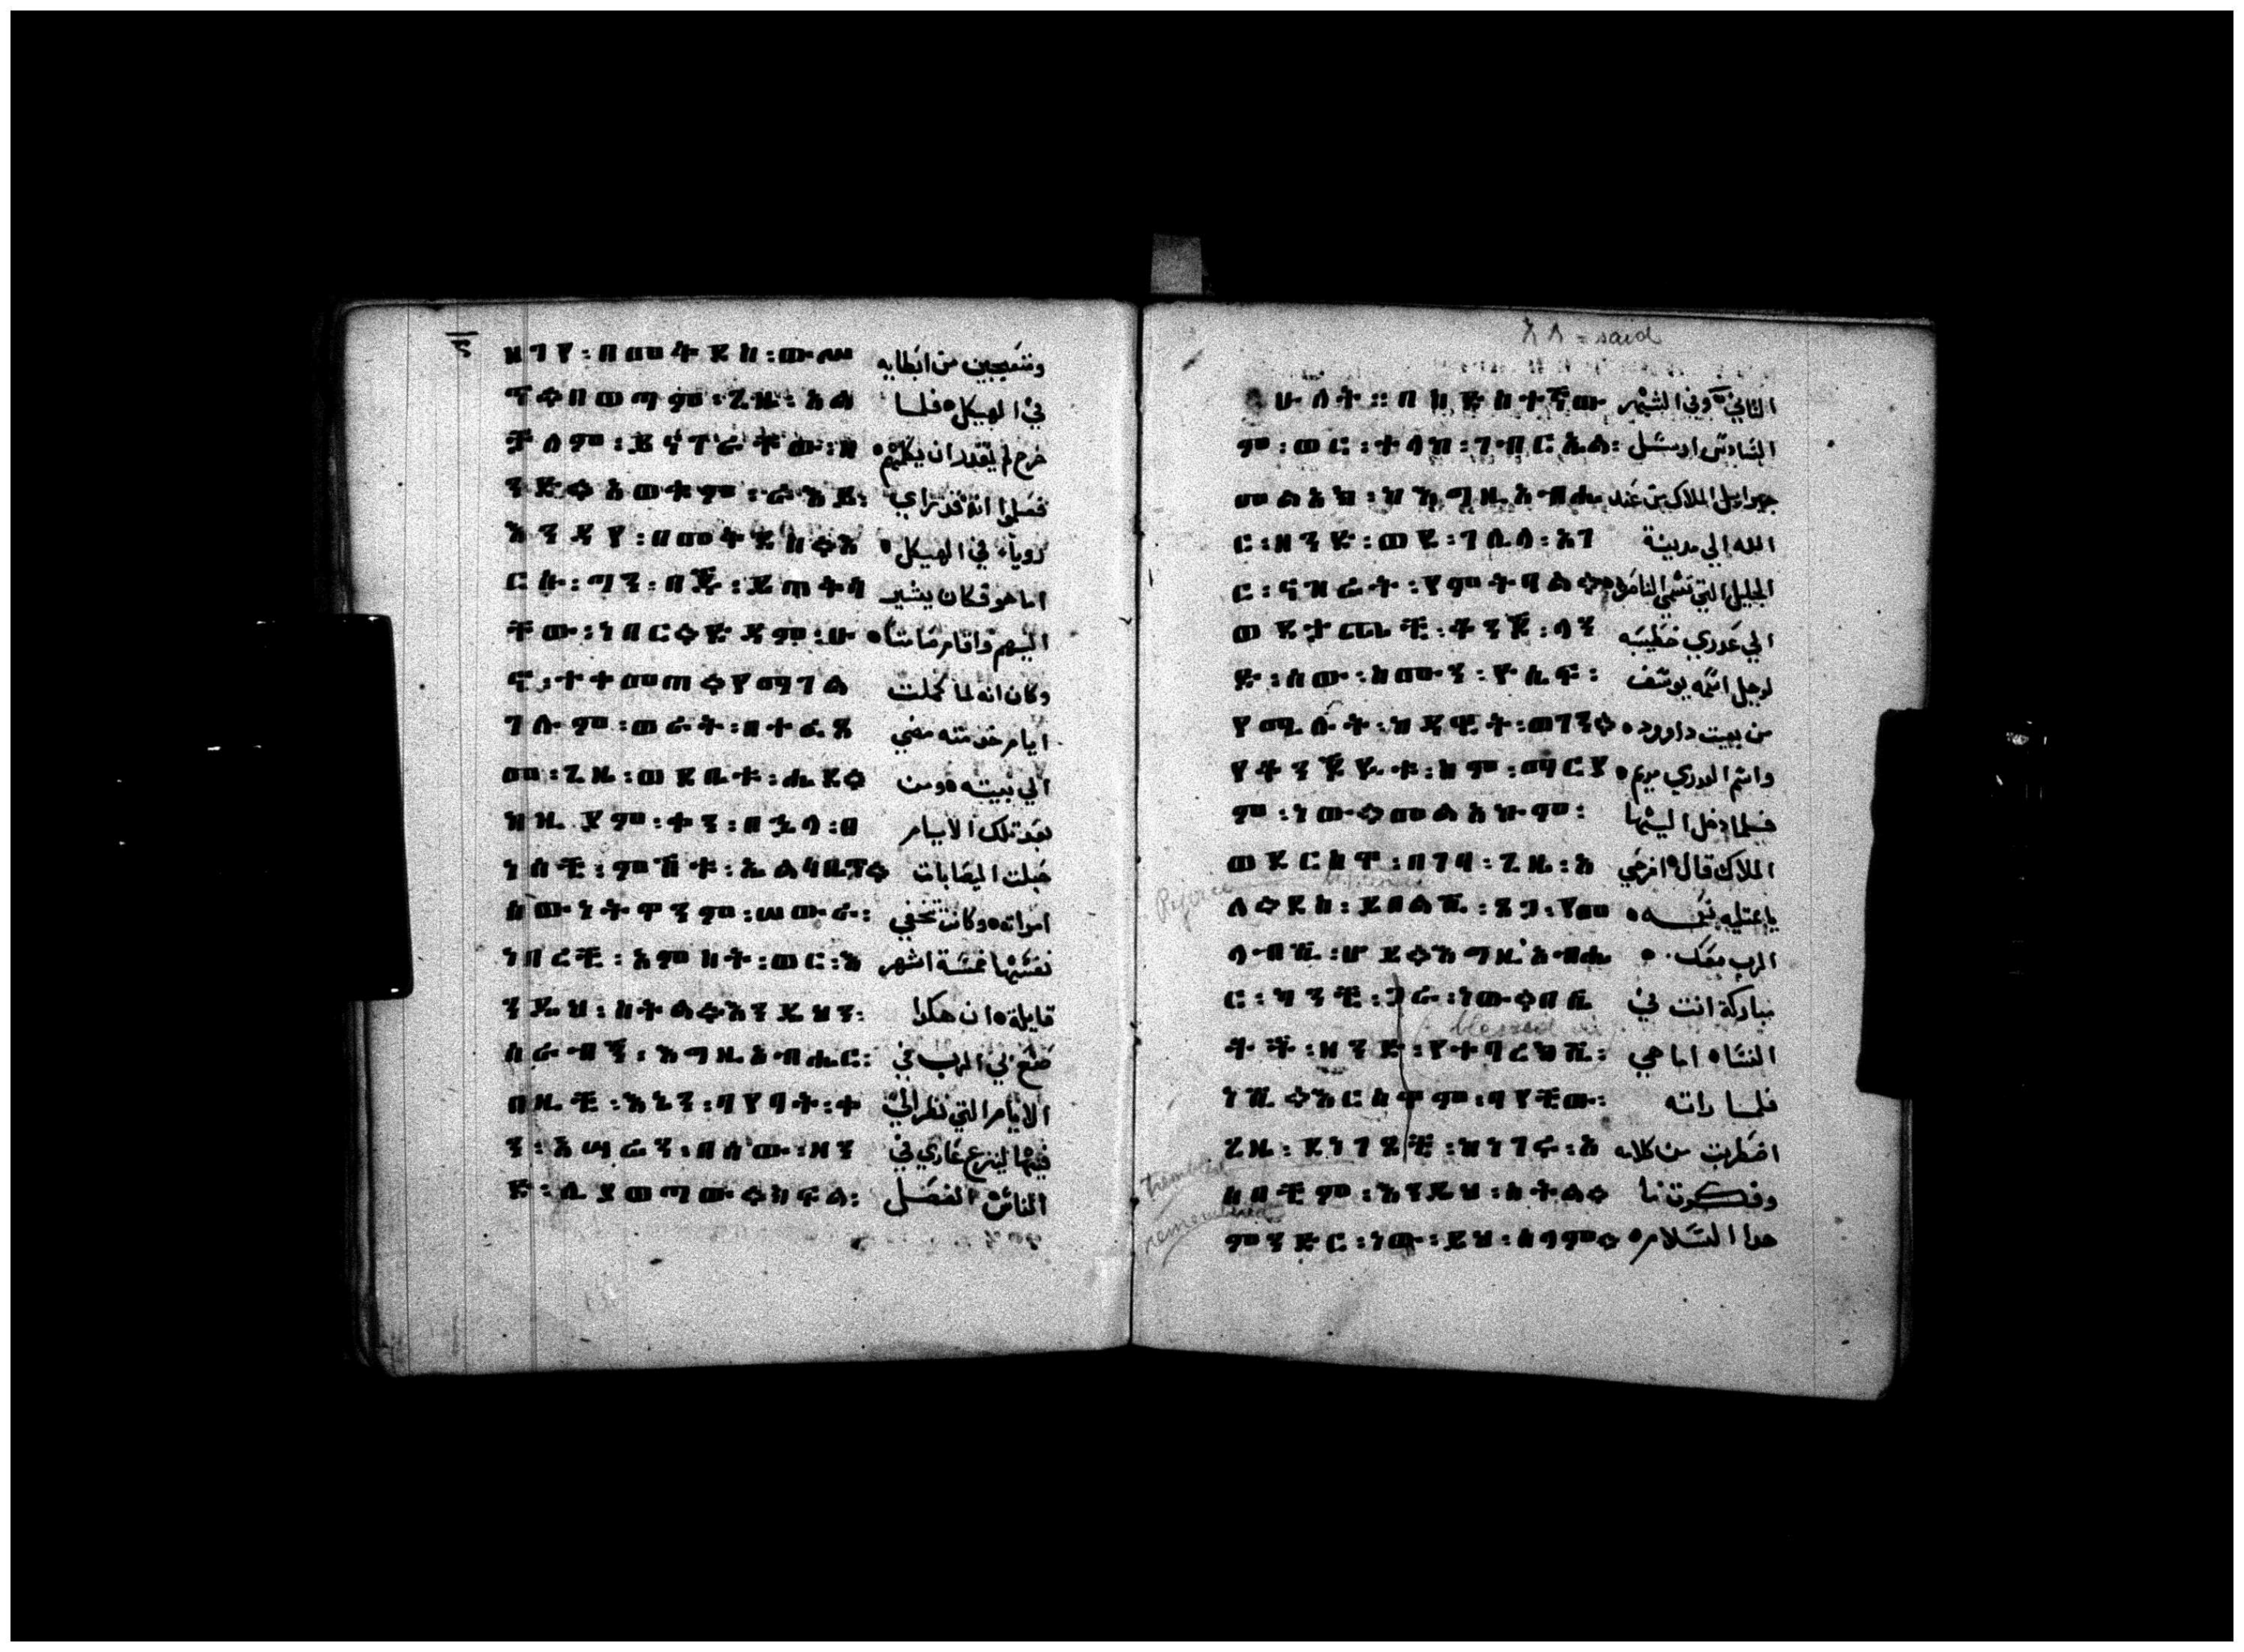 ፮
ዘገየ፡በመቅደስ፡ውሥ ومتعجبين من ابطايه
ጥ።በወጣም፡ጊዜ፡አል في الهيكل ٥ فلما
ቻለም፡ይናገራቸው፡ዘ خرج لم يقدر ان يكلمهم ٥
ንድ።አወቁም፡ራእይ፡ فعلموا انه قد راي
እንዳየ፡በመቅደስ።እ رويا في الهيكل ٥
ርሱ፡ግን፡በጅ፡ይጠቅሳ اما هو فكان يشير
ቸው፡ነበር።ድዳም፡ሁ اليهم واقام صامتا ٥
ኖ፡ተቀመጠ።የማገል وكان انه لما كملت
ገሉም፡ወራት፡በተፈጸ ايام خدمته مضي
መ፡ጊዜ፡ወደቤቱ፡ሔደ። الي بيته ٥ ومن
ከዚያም፡ቀን፡በኋላ፡ፀ بعد تلك الايام
ነሰች፡ምሽቱ፡ኤልሳቤጥ። حبلت اليصابات
ሰውነትዋንም፡ሠውራ፡ امراته ٥ وكانت تخفي
ነበረች፡አምስት፡ወር፡እ نفسها خمسة اشهر
ንዲህ፡ስትል።እንዲህ፡ قايلة ٥ ان هكدا
ሰራብኝ፡እግዚአብሔር፡ صنع لي الرب في
በዚች፡እኔን፡ባየባት፡ቀ الايام التي نظر الي
ን፡አሣሬን፡በሰው፡ዘን فيها لينزع عاري في
ድ፡ሊያወጣው።ክፍል፡ الناس الفصل
አለ = said
ሁለት።በስድስተኛው الثاني ٥ وفي الشهر
ም፡ወር፡ተላከ፡ገብርኤል፡ السادس ارسل
መልአክ፡ከእግዚአብሔ جبراييل الملاك من عند
ር፡ዘንድ፡ወደ፡ገሊላ፡አገ الله الي مدينة
ር፡ናዝሬት፡የምትባል። الجليل التي تسمي الناصره
ወደተጨች፡ቅንጅ፡ላን الي عدري خطيبه
ድ፡ሰው፡ስሙን፡ዮሴፍ፡ لرجل اسمه يوسف
የሚሉት፡ከዳዊት፡ወገን። من بيت داوود ٥
የቅንጅዩት፡ስም፡ማርያ واسم العدري مريم ٥
ም፡ነው።መልአኩም፡ فلما دخل اليها
ወደርስዋ፡በገባ፡ጊዜ፡አ الملاك قال ٥ افرحي
Rejoice
ለ።ደስ፡ይበልሽ፡ጸጋ፡የመ يا ممتليه نعمه ٥
ላብሽ፡ሆይ።እግዚአብሔ الرب معك ٥
ር፡ካንቺ፡ጋራ፡ነው።በሴ مباركة انت في
blessed
ቶች፡ዘንድ፡የተባረክሽ፡ النسا ٥ اما هي
ነሽ።እርስዋም፡ባየችው፡ فلما راته
ጊዜ፡ደነገጸች፡ከነገሩ፡አ اضطربت من كلامه
trembled
ሰበችም፡እንዲህ፡ስትል። وفكرت ما
remembered
ምንድር፡ነው፡ይህ፡ሰላም። هدا السلام ٥